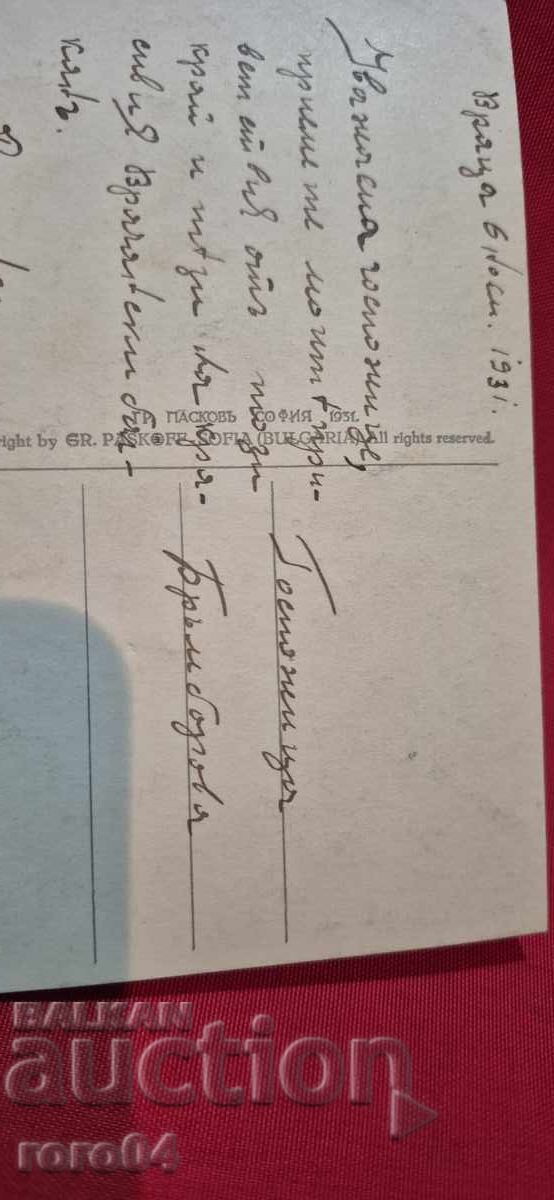 Враца 6 Ноем. 1931.
Уважаема госпожице,
приемете моитѣ при-
ветствия отъ този
край и тѣзи
Врачански бал-
канъ.
ГР. ПАСКОВЪ СОФИЯ 1931.
right by GR. PASKOFF SOFIA (BULGARIA) All rights reserved.
Госпожица
Бръмбарова
BALKAN
auction
roro04